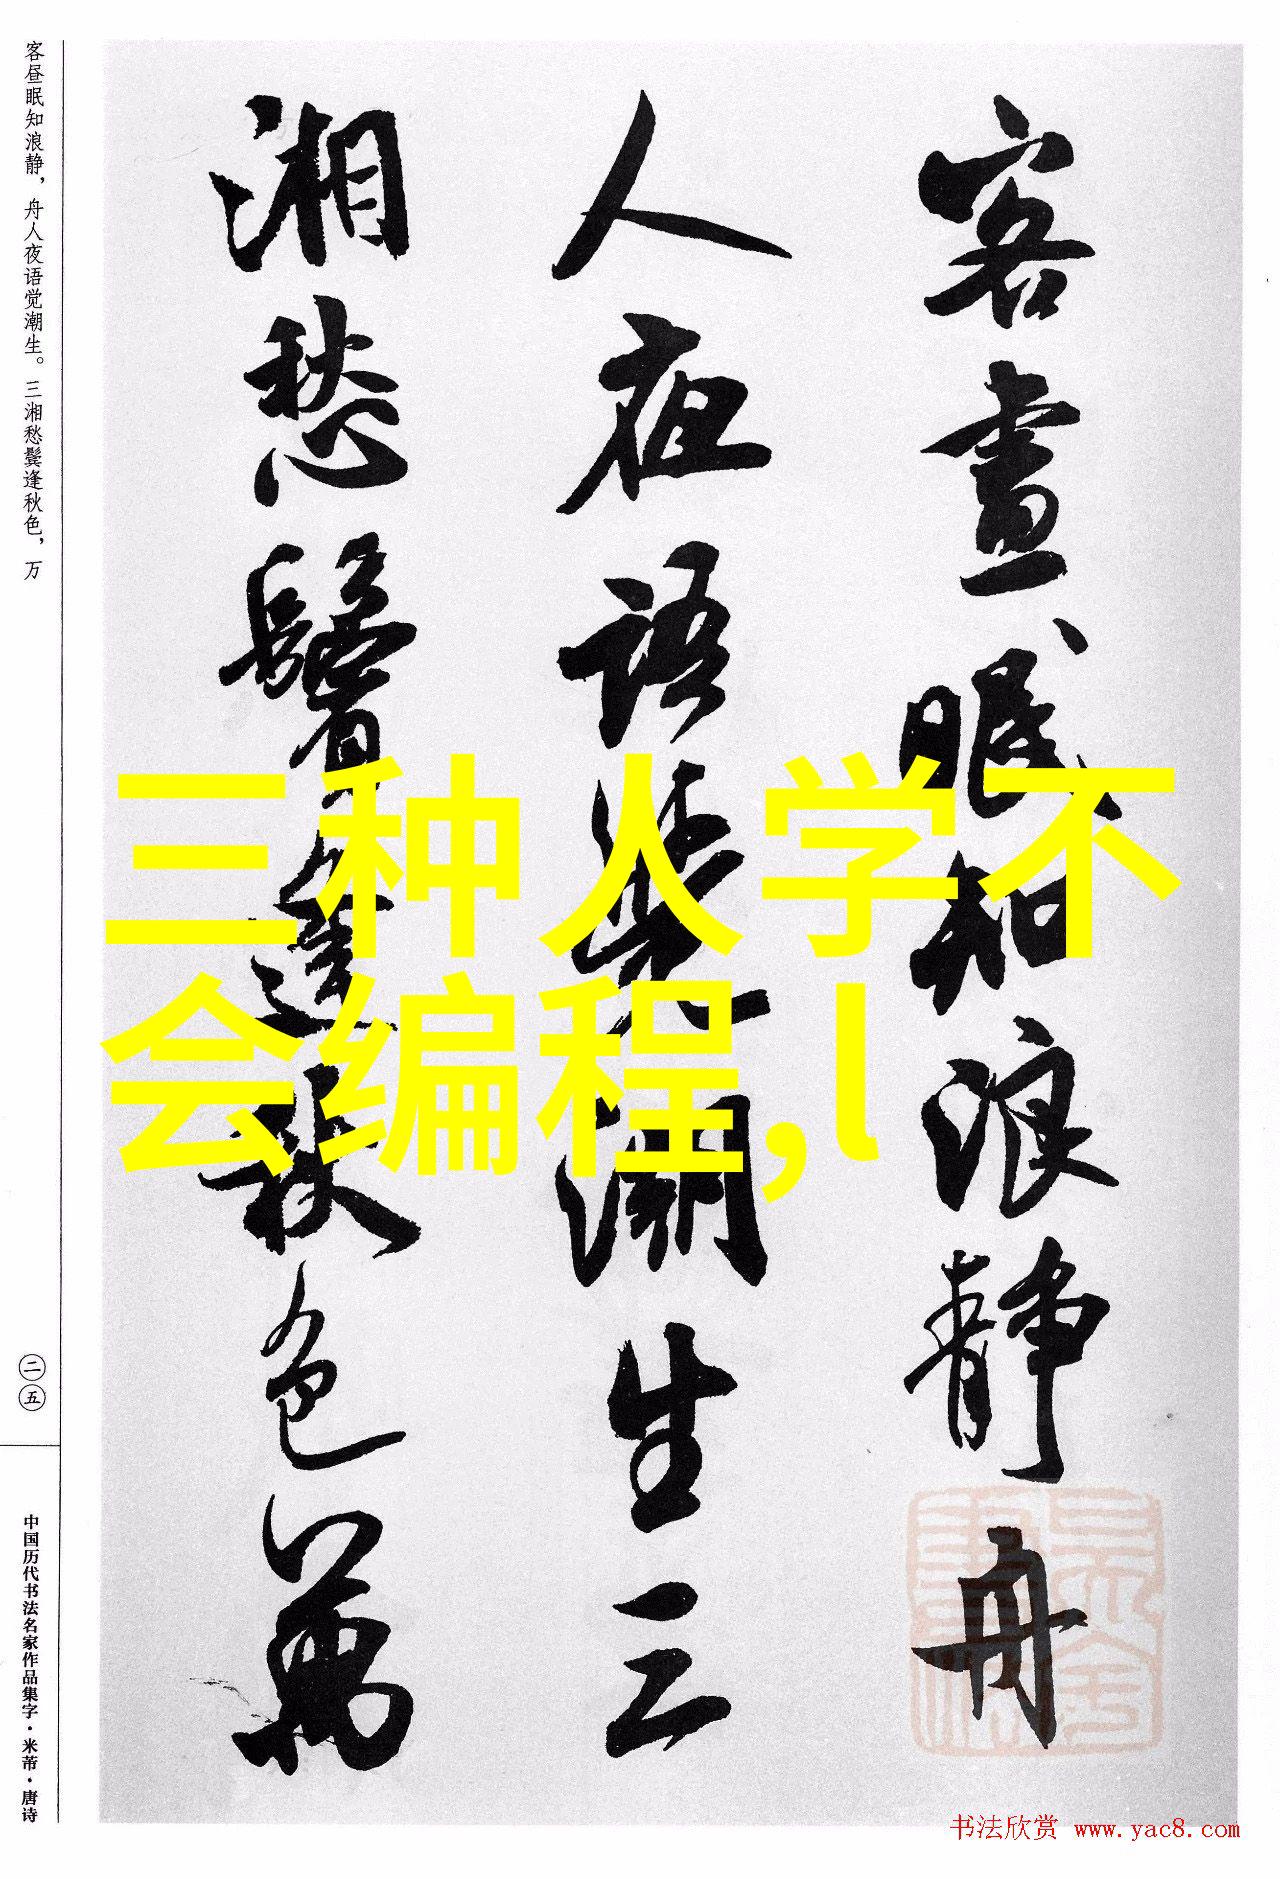 客昼眠知浪静，舟人夜语觉潮生。三湘愁鬓逢秋色，万
客晝眠知浪静舟
人夜语觉潮生三
湘愁鬢逢秋色萬
三种人学不
会编程,l
二五
中国历代书法名家作品集字·米芾·唐诗
书法欣赏 www.yac8.com